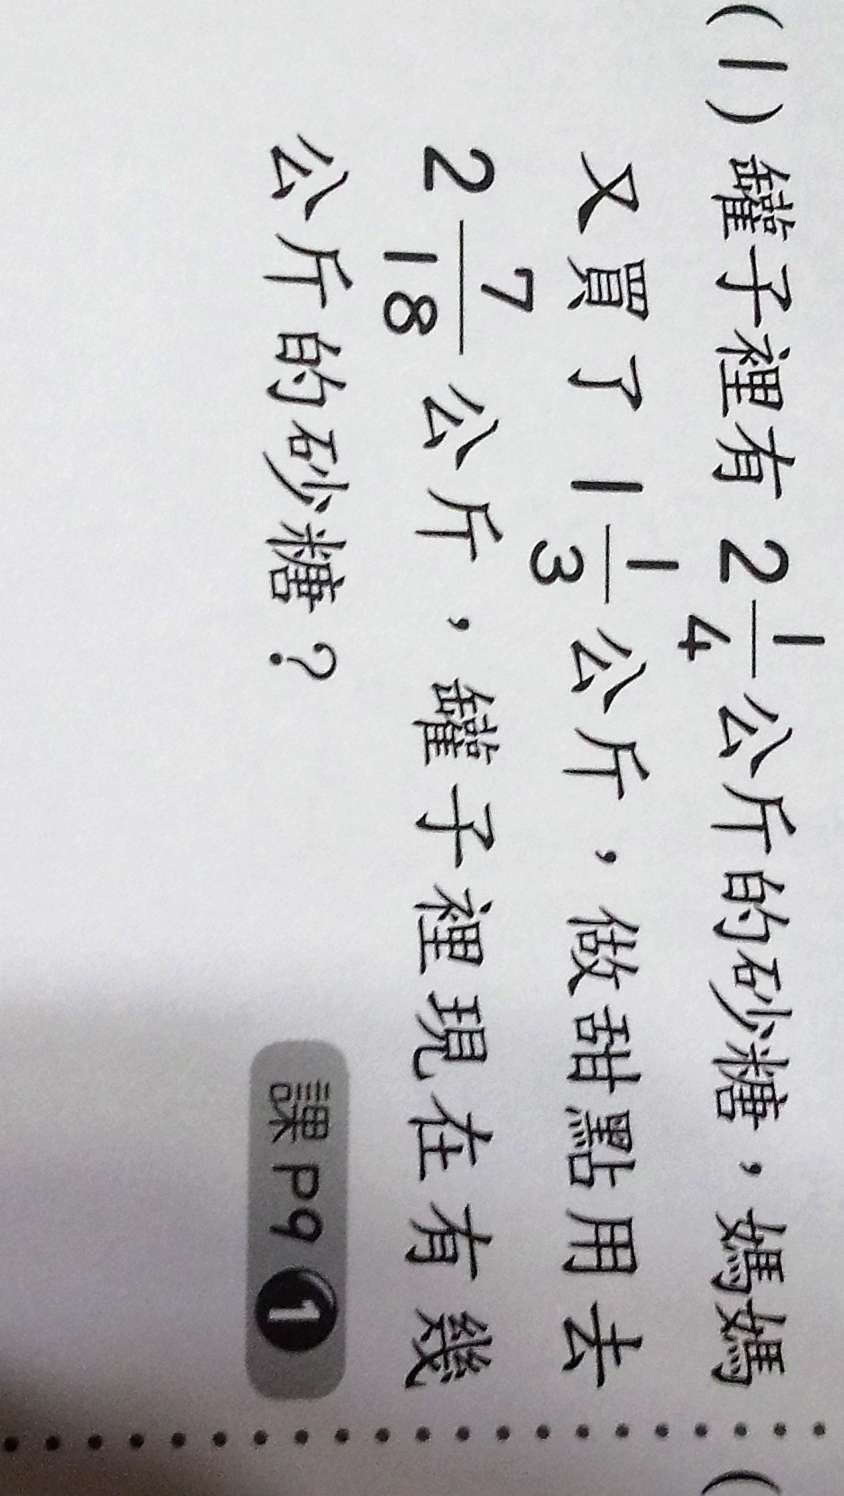 (1) 罐子裡有 2 1/4 公斤的砂糖，媽媽
又買了 1 1/3 公斤，做甜點用去
2 7/18 公斤，罐子裡現在有幾
公斤的砂糖？
課P9 1
(